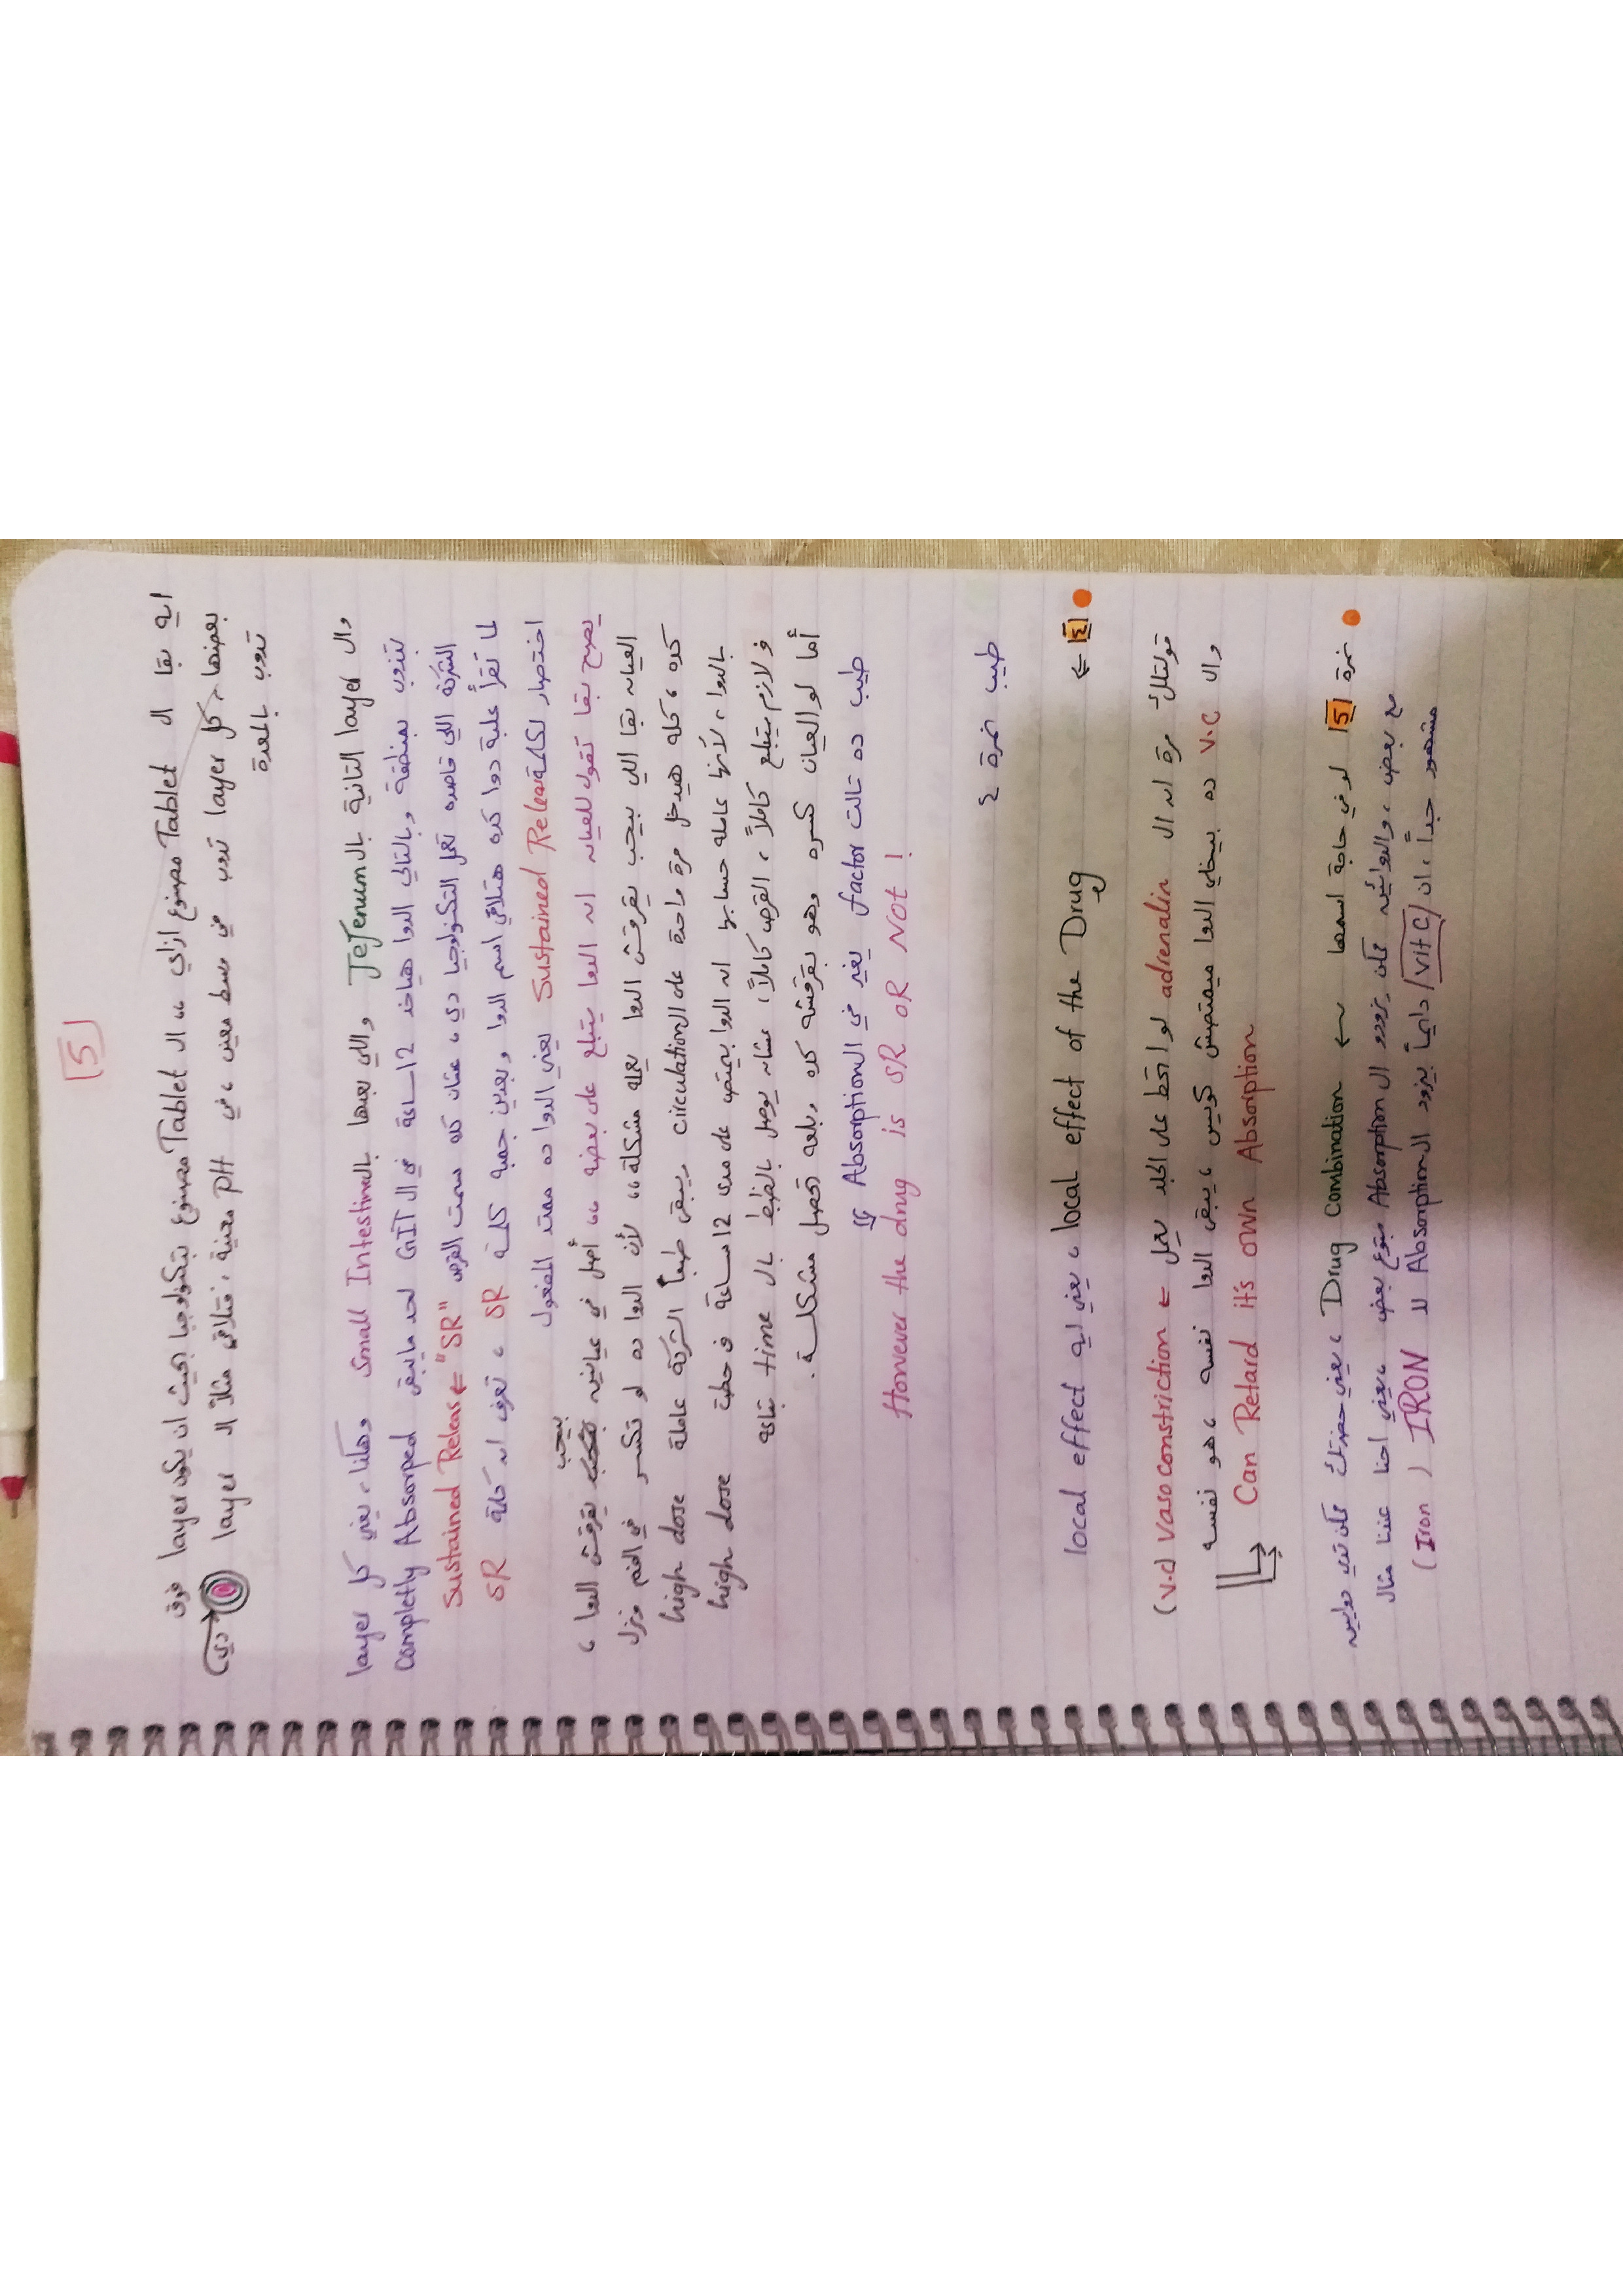 [5]
ايه بقا ال Tablet مصنوع ازاي ،، ال Tablet مصنوع بتكنولوجيا بحيث ان يكون layer فوق
بعضها، كل layer تدوب في وسط معين ، في pH معينة ، فتلاقي مثلاً ال layer دي
تدوب بالمعدة
وال layer التانية بال Jejenum واللي بعدها بال Small Intestine وهكذا ، يعني كل layer
بتذوب بمنطقة وبالتالي الدوا هياخد 12 ساعة في ال GIT لحد مايبقى Completly Absorped
الشركة اللي قاصده تعمل التكنولوجيا دي ، عشان كده سمت القرص "SR" ← Sustained Releas
لما تقرأ علبة دوا كده هتلاقي اسم الدوا وبعدين جمبه كلمة SR ، تعرف انه كلمة SR
اختصار لكلمة Sustained Release يعني الدوا ده ممتد المفعول
يصبح بقا تقول للعيان انه الدوا يتبلع على بعضه ،، أصل في عيانين بيحب يقرقش الدوا ،
العيان بقا اللي بيحب يقرقش الدوا يعمله مشكلة ،، لأن الدوا ده لو تكسر في الفم ونزل
كده ، كله هيدخل مرة واحدة على ال circulation ويبقى طبعاً الشركة عاملة high dose
بالدوا ، لأنها عامله حسابها انه الدوا بيمتص على مدى 12 ساعة فحطت high dose
فلازم يتبلع كاملاً ، القرص كاملاً ، عشان يوصل بالظبط بال time بتاعه
أما لو العيان كسره وهو بقرقشه كده وبلعه تحصل مشكلة .
طيب ده تالت factor يغير في ال Absorption
However the drug is SR OR NOT !
طيب نمرة ٤
[4] ← local effect of the Drug ، يعني ايه local effect
قولتلك مرة انه ال adrenalin لو اتحط على الجلد يعمل ← vasoconstriction (V.C)
وال V.C ده بيخلي الدوا ميمتصش كويس ، يبقى الدوا نفسه ، هو نفسه
Can Retard it's own Absorption
نمرة [5] لو في حاجة اسمها ← Drug combination ، يعني حضرتك ممكن تدي دوايين
مع بعض ، والدوائين ممكن يزودو ال Absorption بتوع بعض ، يعني احنا عندنا مثال
مشهور جداً ، ان [vit C] دايماً يزود ال Absorption لل IRON (Iron)